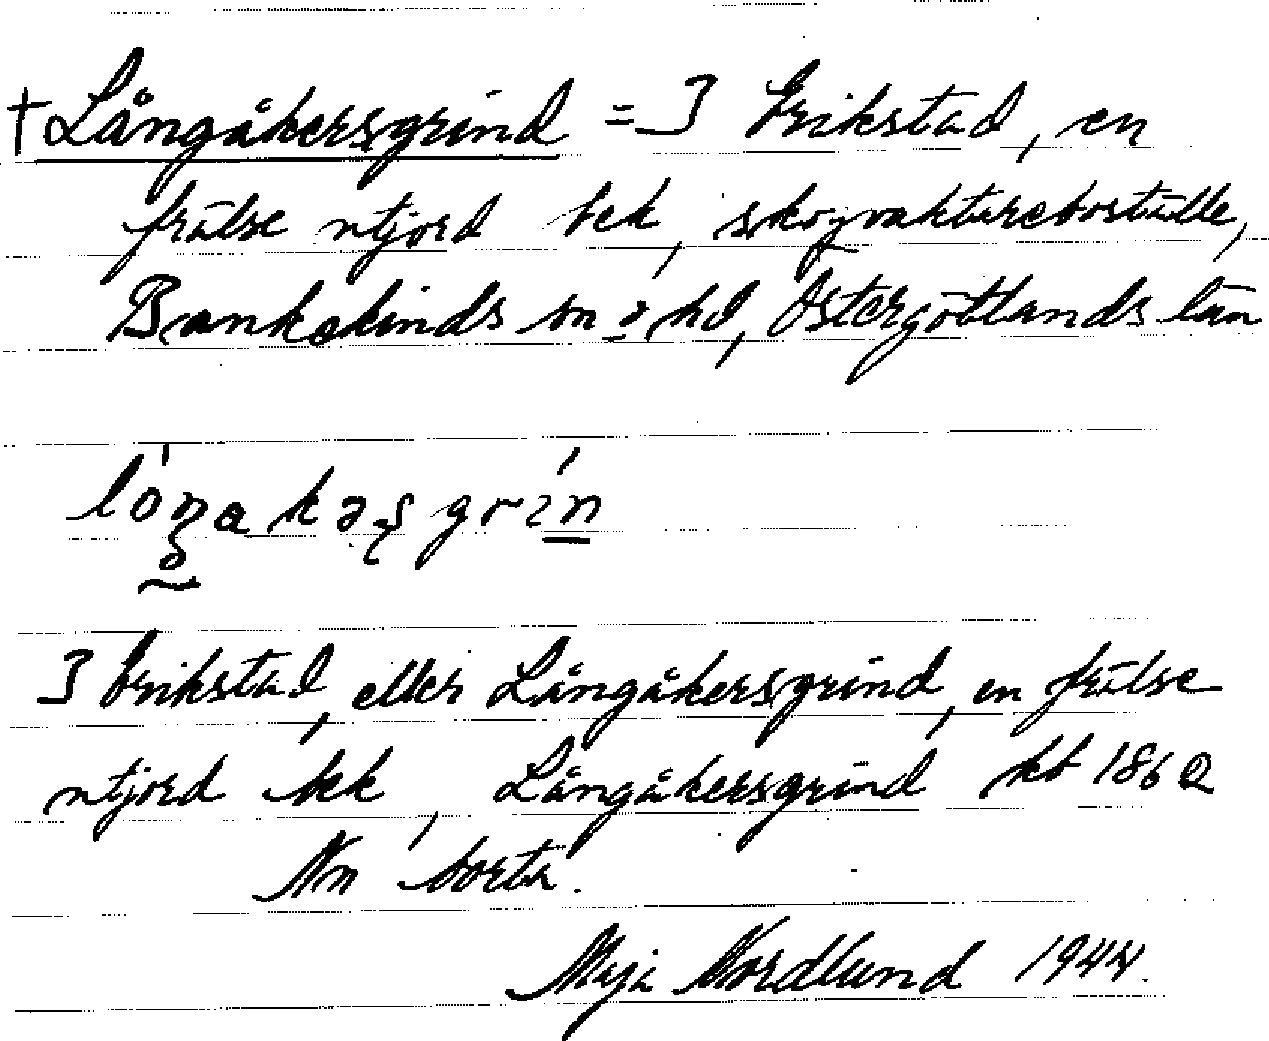 †Långåkersgrind = I Erikstad, en
frälse utjord bek, skogvaktareboställe,
Bankekinds sn o hd, Östergötlands län
I Erikstad, eller Långåkersgrind, en frälse
utjord bek, Långåkersgrind kb 1862
Nu borta.
Maja Nordlund 1944.